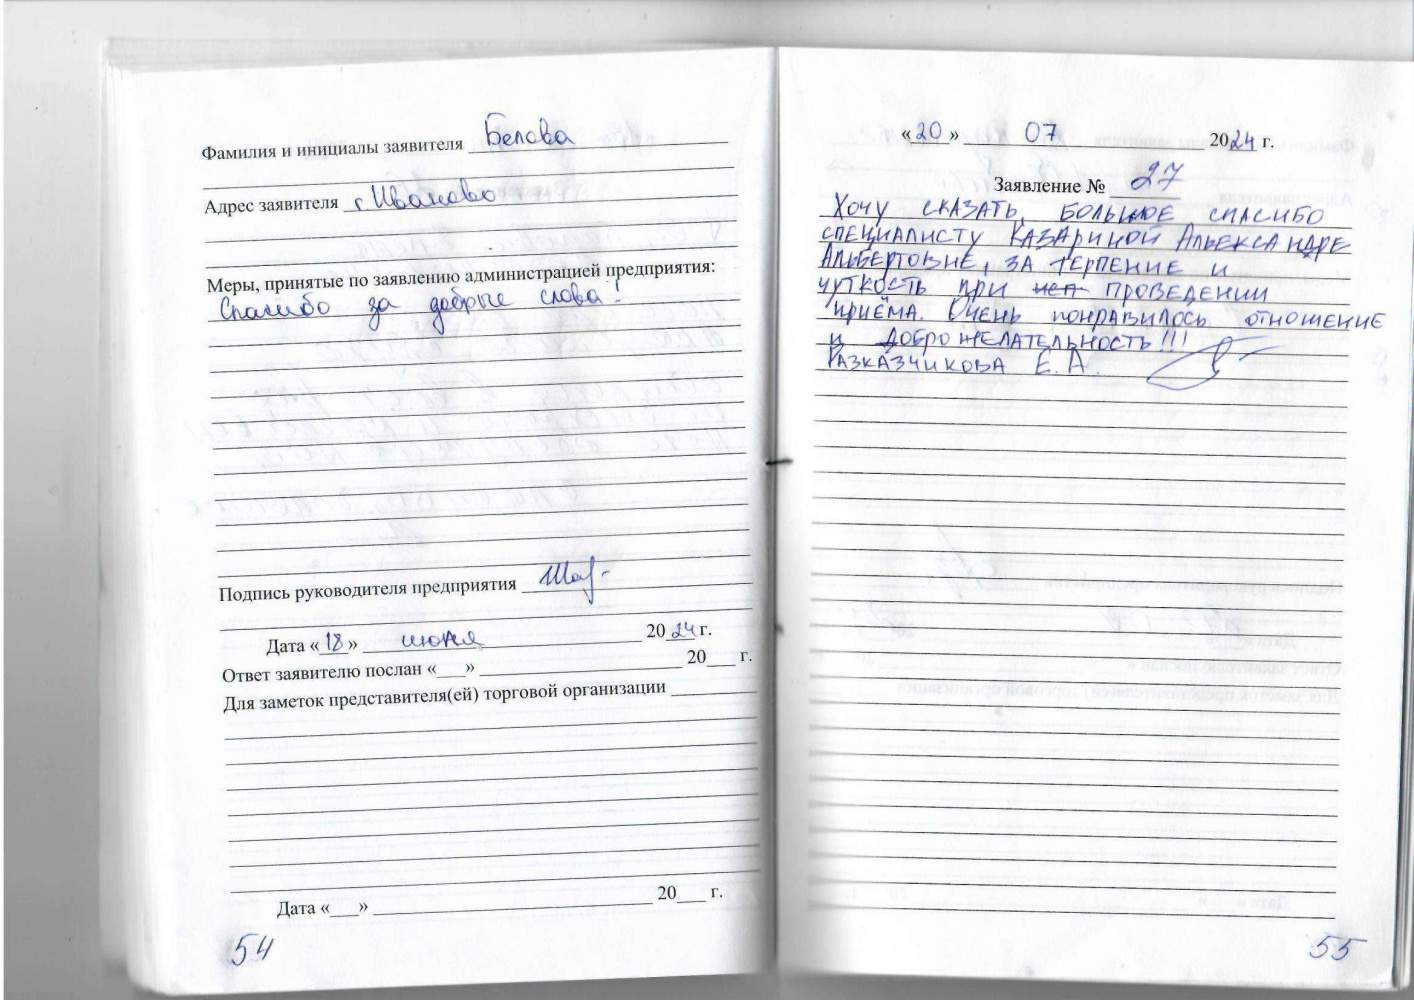 Фамилия и инициалы заявителя Белова
Адрес заявителя г. Иваново
Меры, принятые по заявлению администрацией предприятия:
Спасибо за добрые слова!
Подпись руководителя предприятия
Дата «18» июля 2024 г.
Ответ заявителю послан «___» 20___ г.
Для заметок представителя(ей) торговой организации
Дата «___» 20___ г.
54
«20» 07 2024 г.
Заявление № 27
Хочу сказать большое спасибо
специалисту Казариной Александре
Альбертовне, за терпение и
чуткость при проведении
приёма. Очень понравилось отношение
и доброжелательность!!!
Разказчикова Е.А.
55